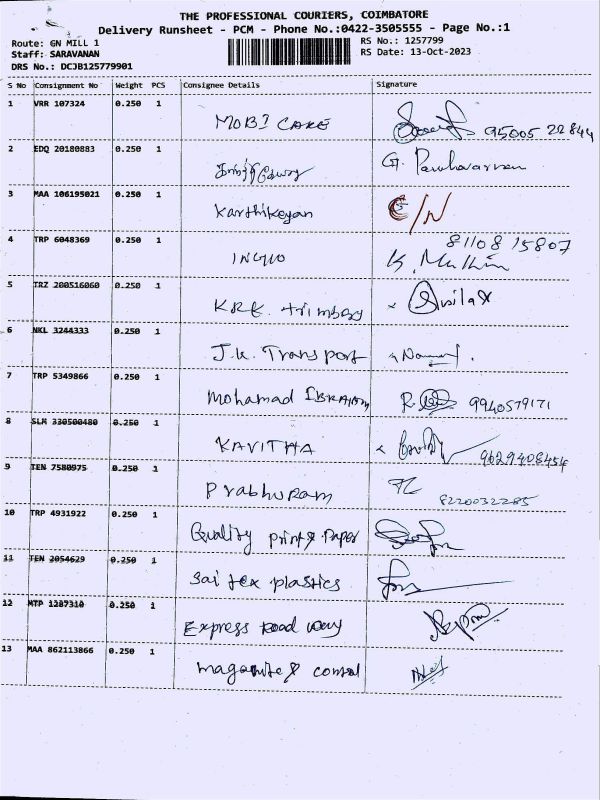 THE PROFESSIONAL COURIERS, COIMBATORE
Delivery Runsheet - PCM - Phone No.:0422-3505555 - Page No.:1
Route: GN MILL 1
RS No.: 1257799
Staff: SARAVANAN
RS Date: 13-Oct-2023
DRS No.: DCJB125779901
S No Consignment No Weight PCS Consignee Details Signature
1 VRR 107324 0.250 1 MOBI CARE 95005 22844
2 EDQ 20180883 0.250 1 G.
3 MAA 106195021 0.250 1 Karthikeyan C/N
4 TRP 6048369 0.250 1 81108 15807
K.
5 TRZ 200516060 0.250 1 KRK
6 NKL 3244333 0.250 1 J.K. Transport
7 TRP 5349866 0.250 1 Mohamad IBRAHIM R. 9940579171
8 SLM 330500480 0.250 1 KAVITHA 9629408454
9 TEN 7580975 0.250 1 Prabhuram 8220032285
10 TRP 4931922 0.250 1 Quality print & Paper
11 TEN 2054629 0.250 1 Sai tex plastics
12 MTP 1287310 0.250 1 Express Road way
13 MAA 862113866 0.250 1